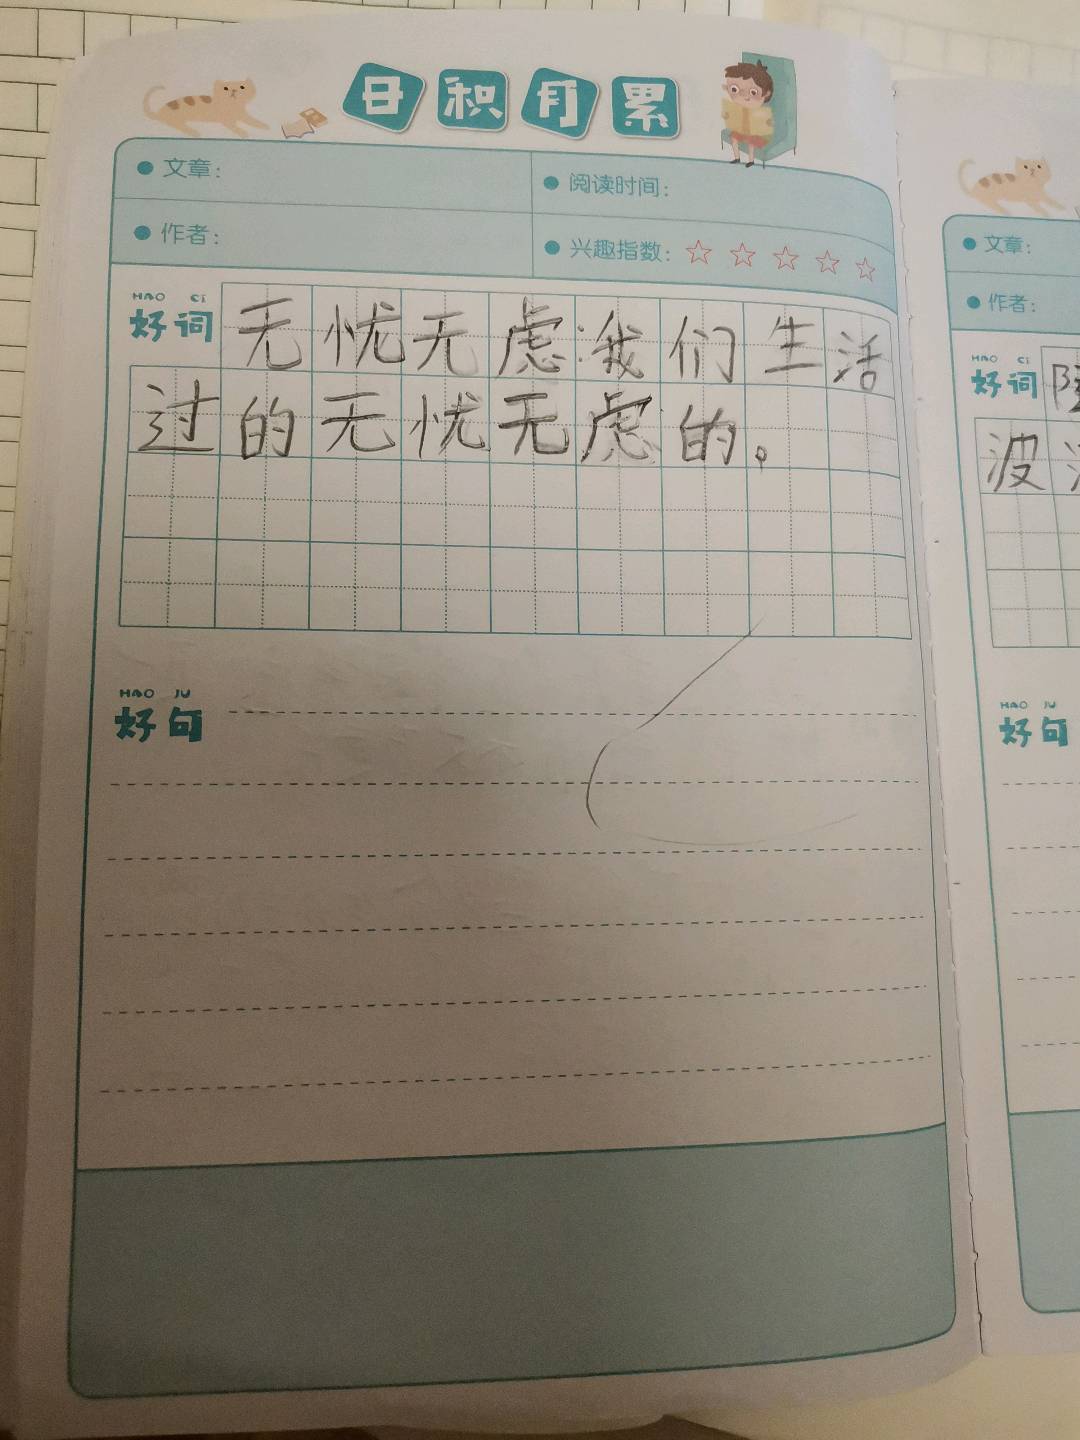 日积月累
文章：
阅读时间：
作者：
兴趣指数：
HAO CI
好词
无忧无虑:我们生活
过的无忧无虑的。
HAO JU
好句
文章：
作者：
HAO CI
好词
波
HAO JU
好句